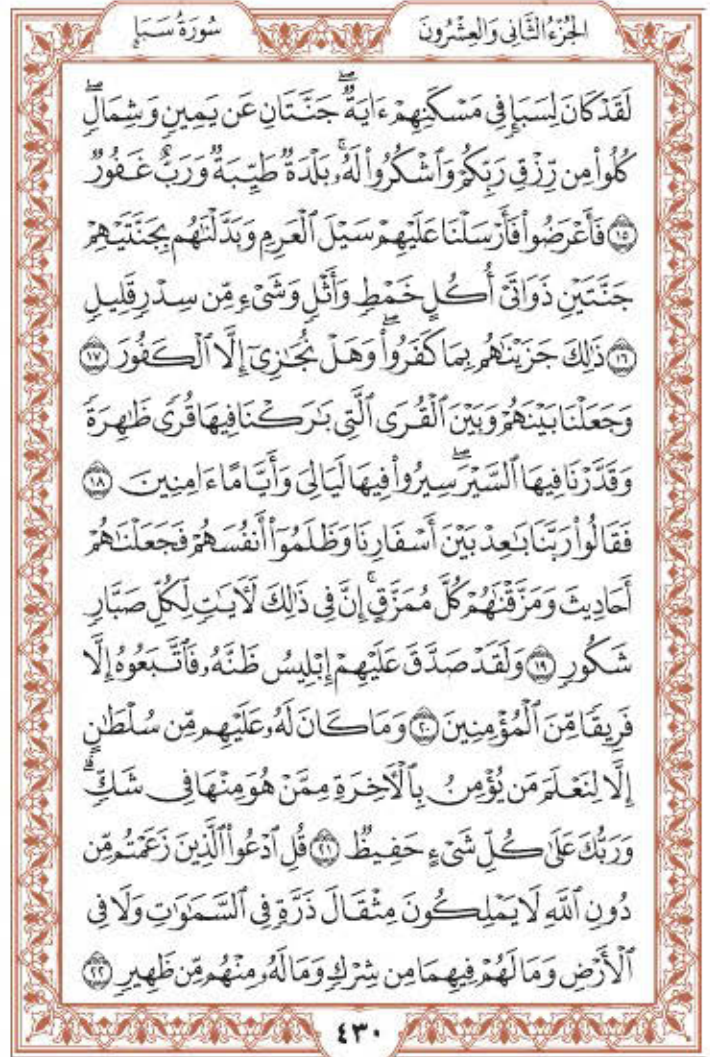 سُورَةُ سَبَإٍ
الجُزْءُ الثَّانِي وَالعِشْرُونَ
لَقَدْ كَانَ لِسَبَإٍ فِي مَسْكَنِهِمْ ءَايَةٌ ۖ جَنَّتَانِ عَن يَمِينٍ وَشِمَالٍ ۖ
كُلُوا۟ مِن رِّزْقِ رَبِّكُمْ وَٱشْكُرُوا۟ لَهُۥ ۚ بَلْدَةٌ طَيِّبَةٌ وَرَبٌّ غَفُورٌ
١٥ فَأَعْرَضُوا۟ فَأَرْسَلْنَا عَلَيْهِمْ سَيْلَ ٱلْعَرِمِ وَبَدَّلْنَٰهُم بِجَنَّتَيْهِمْ
جَنَّتَيْنِ ذَوَاتَىْ أُكُلٍ خَمْطٍ وَأَثْلٍ وَشَىْءٍ مِّن سِدْرٍ قَلِيلٍ
١٦ ذَٰلِكَ جَزَيْنَٰهُم بِمَا كَفَرُوا۟ ۖ وَهَلْ نُجَٰزِىٓ إِلَّا ٱلْكَفُورَ ١٧
وَجَعَلْنَا بَيْنَهُمْ وَبَيْنَ ٱلْقُرَى ٱلَّتِى بَٰرَكْنَا فِيهَا قُرًى ظَٰهِرَةً
وَقَدَّرْنَا فِيهَا ٱلسَّيْرَ ۖ سِيرُوا۟ فِيهَا لَيَالِىَ وَأَيَّامًا ءَامِنِينَ ١٨
فَقَالُوا۟ رَبَّنَا بَٰعِدْ بَيْنَ أَسْفَارِنَا وَظَلَمُوٓا۟ أَنفُسَهُمْ فَجَعَلْنَٰهُمْ
أَحَادِيثَ وَمَزَّقْنَٰهُمْ كُلَّ مُمَزَّقٍ ۚ إِنَّ فِى ذَٰلِكَ لَءَايَٰتٍ لِّكُلِّ صَبَّارٍ
شَكُورٍ ١٩ وَلَقَدْ صَدَّقَ عَلَيْهِمْ إِبْلِيسُ ظَنَّهُۥ فَٱتَّبَعُوهُ إِلَّا
فَرِيقًا مِّنَ ٱلْمُؤْمِنِينَ ٢٠ وَمَا كَانَ لَهُۥ عَلَيْهِم مِّن سُلْطَٰنٍ
إِلَّا لِنَعْلَمَ مَن يُؤْمِنُ بِٱلْءَاخِرَةِ مِمَّنْ هُوَ مِنْهَا فِى شَكٍّ ۗ
وَرَبُّكَ عَلَىٰ كُلِّ شَىْءٍ حَفِيظٌ ٢١ قُلِ ٱدْعُوا۟ ٱلَّذِينَ زَعَمْتُم مِّن
دُونِ ٱللَّهِ لَا يَمْلِكُونَ مِثْقَالَ ذَرَّةٍ فِى ٱلسَّمَٰوَٰتِ وَلَا فِى
ٱلْأَرْضِ وَمَا لَهُمْ فِيهِمَا مِن شِرْكٍ وَمَا لَهُۥ مِنْهُم مِّن ظَهِيرٍ ٢٢
٤٣٠